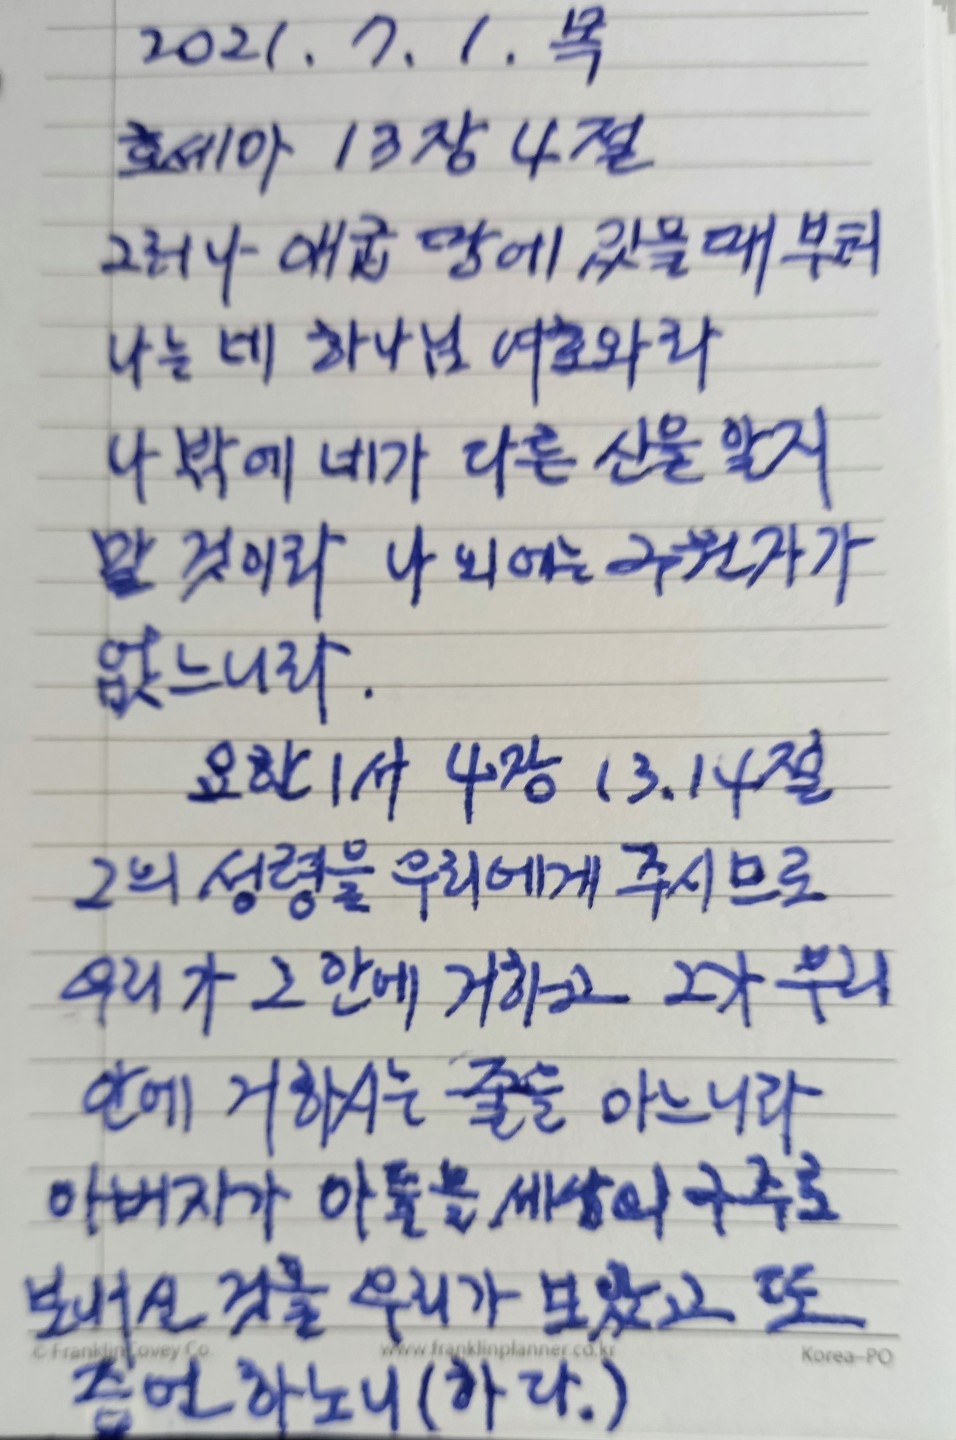 2021. 7. 1. 목
호세아 13장 4절
그러나 애굽 땅에 있을때부터
나는 네 하나님 여호와라
나 밖에 네가 다른 신을 알지
말 것이라 나 외에는 구원자가
없느니라.
요한1서 4장 13.14절
그의 성령을 우리에게 주시므로
우리가 그 안에 거하고 그가 우리
안에 거하시는 줄을 아느니라
아버지가 아들을 세상의 구주로
보내신 것을 우리가 보았고 또
© FranklinCovey Co. www.franklinplanner.co.kr Korea-PO
증언하노니(하다.)